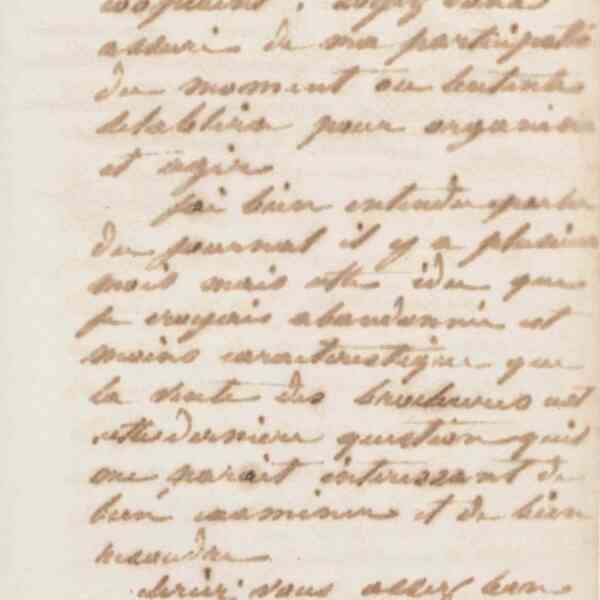 soyez vous
assuré de ma participatio
du moment ou l'entente
s'etablira pour organiser
et agir
j'ai bien entendu parler
du journal il y a plusieurs
mois mais cette idée que
je croyais abandonnée est
moins caracteristique que
la vente des brochures est
cette derniere question qu'il
me parait interessant de
bien examiner et de bien
resoudre
vous assez bon